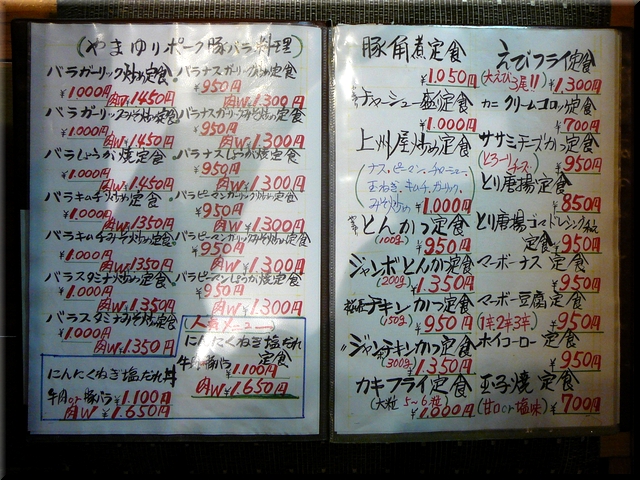 (やまゆりポーク豚バラ料理)
バラガーリック炒め定食
¥1000円
肉W¥1450円
バラガーリックみそ炒め定食
¥1000円
肉W¥1450円
バラしょうが焼定食
¥1000円
肉W¥1450円
バラキムチ炒め定食
¥1000円
肉W¥1350円
バラキムチみそ炒め定食
¥1000円
肉W¥1350円
バラスタミナ炒め定食
¥1000円
肉W¥1.350円
バラスタミナみそ炒め定食
¥1000円
肉W¥1.350円
にんにくねぎ塩だれ丼
牛肉or豚バラ¥1.100円
肉W¥1.650円
バラナスガーリック炒め定食
¥950円
肉W¥1.300円
バラナスガーリックみそ炒め定食
¥950円
肉W¥1.300円
バラナスしょうが焼定食
¥950円
肉W¥1.300円
バラピーマンガーリック炒め定食
¥950円
肉W¥1.300円
バラピーマンガーリックみそ炒め定食
¥950円
肉W¥1.300円
バラピーマンしょうが焼定食
¥950円
肉W¥1.300円
(人気メニュー)
にんにくねぎ塩だれ
定食
牛肉or豚バラ
¥1.100円
肉W¥1.650円
豚角煮定食
¥1.050円
チャーシュー盛定食
¥1.000円
上州屋炒め定食
(ナス、ピーマン、チャーシュー、
玉ねぎ、キムチ、ガーリック、
みそ炒め)
¥1.000円
とんかつ定食
(100g)
¥950円
ジャンボとんかつ定食
(200g)
¥1.350円
チキンかつ定食
(150g)
¥950円
〃ジャンボチキンかつ定食
(300g)
¥1.350円
カキフライ定食
(大粒5~6粒)
¥1.000円
えびフライ定食
(大えび3尾!!)
¥1,300円
カニクリームコロッケ定食
¥700円
ササミチーズカツ定食
(とろ〜りチーズ)
¥950円
とり唐揚定食
¥850円
とり唐揚ゴマドレッシング和え
定食
¥950円
マーボーナス定食
¥950円
マーボー豆腐定食
(1辛2辛3辛)
¥950円
ホイコーロー定食
¥950円
玉子焼定食
(甘口or塩味)
¥700円